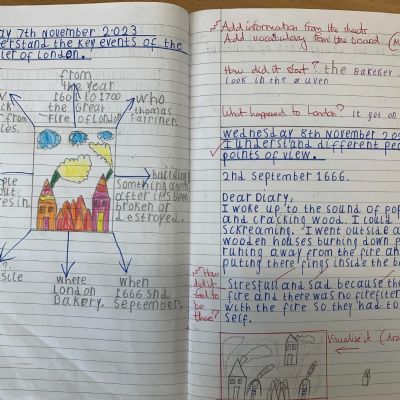 ay 7th november 2023
erstand the key events of the
e of London.
from
the year
1600 to 1700
the great
fire of London
who
thomas
farriner.
from
les.
building
Something again
after it's been
broken or
destroyed.
ople
out
res in.
where
London
Bakery.
when
1666 2nd
September.
Add information from the sheets
Add vocabulary from the board
How did it start? the Bakeker
look in the ouven
What happened to London? it got on
wednesday 8th November 2
I understand different pe
points of view.
2nd September 1666.
Dear Diary,
I woke up to the sound of pop
and cracking wood. I could
sckreaming. I went outside a
wooden houses burning down p
runing away from the fire an
puting there fings inside the b
How did it feel to be there?
Stresfull and sad because the
fire and there was no firefiter
with the fire so they had to
self.
Visualise it (dra